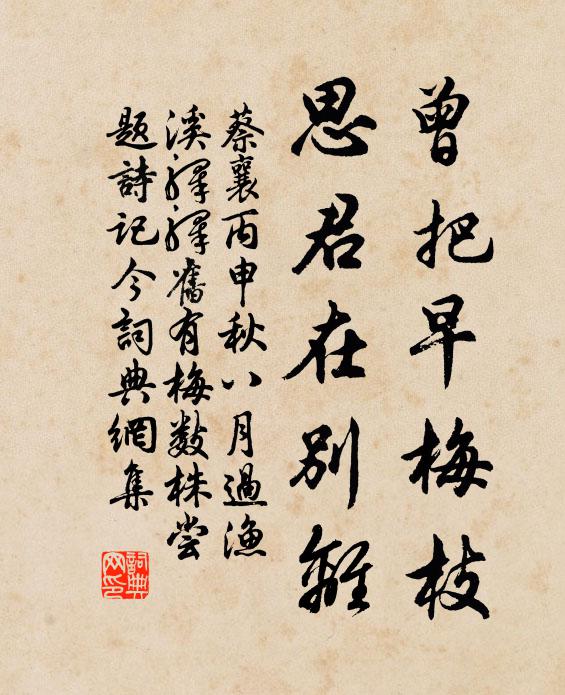 曾把早梅枝
思君在别離
蔡襄丙申秋八月過漁
溪驛驛舊有梅数株嘗
题詩记今詞典網集
詞典
网印